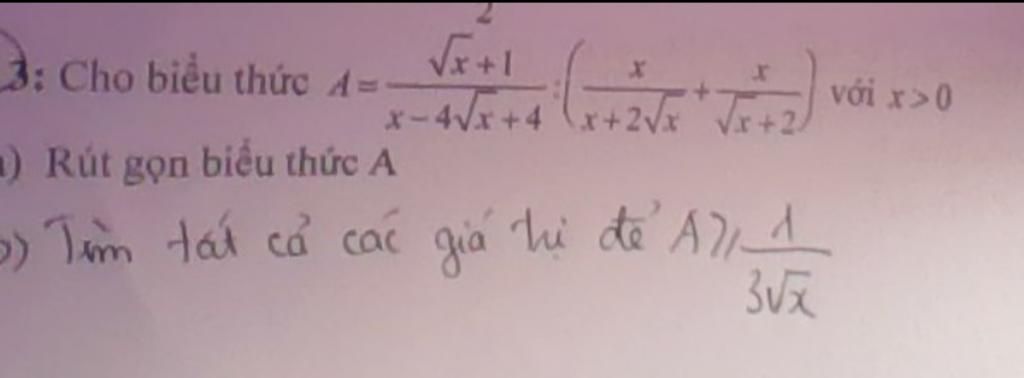 2
3: Cho biểu thức A = \frac{\sqrt{x}+1}{x-4\sqrt{x}+4} : \left( \frac{x}{x+2\sqrt{x}} + \frac{x}{\sqrt{x}+2} \right) với x > 0
a) Rút gọn biểu thức A
b) Tìm tất cả các giá trị để A ≥ \frac{1}{3\sqrt{x}}